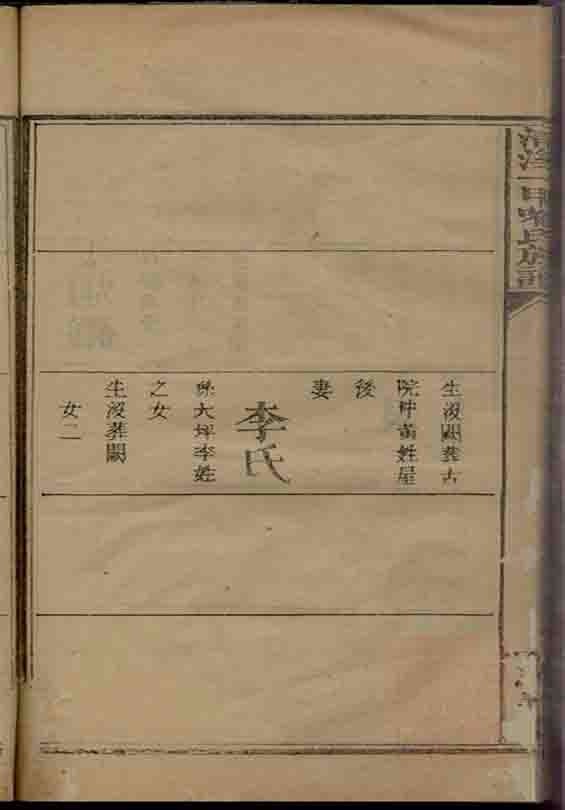 生沒闕葬古
院中黃姓屋
後
妻
李氏
係大坪李姓
之女
生沒葬闕
女二